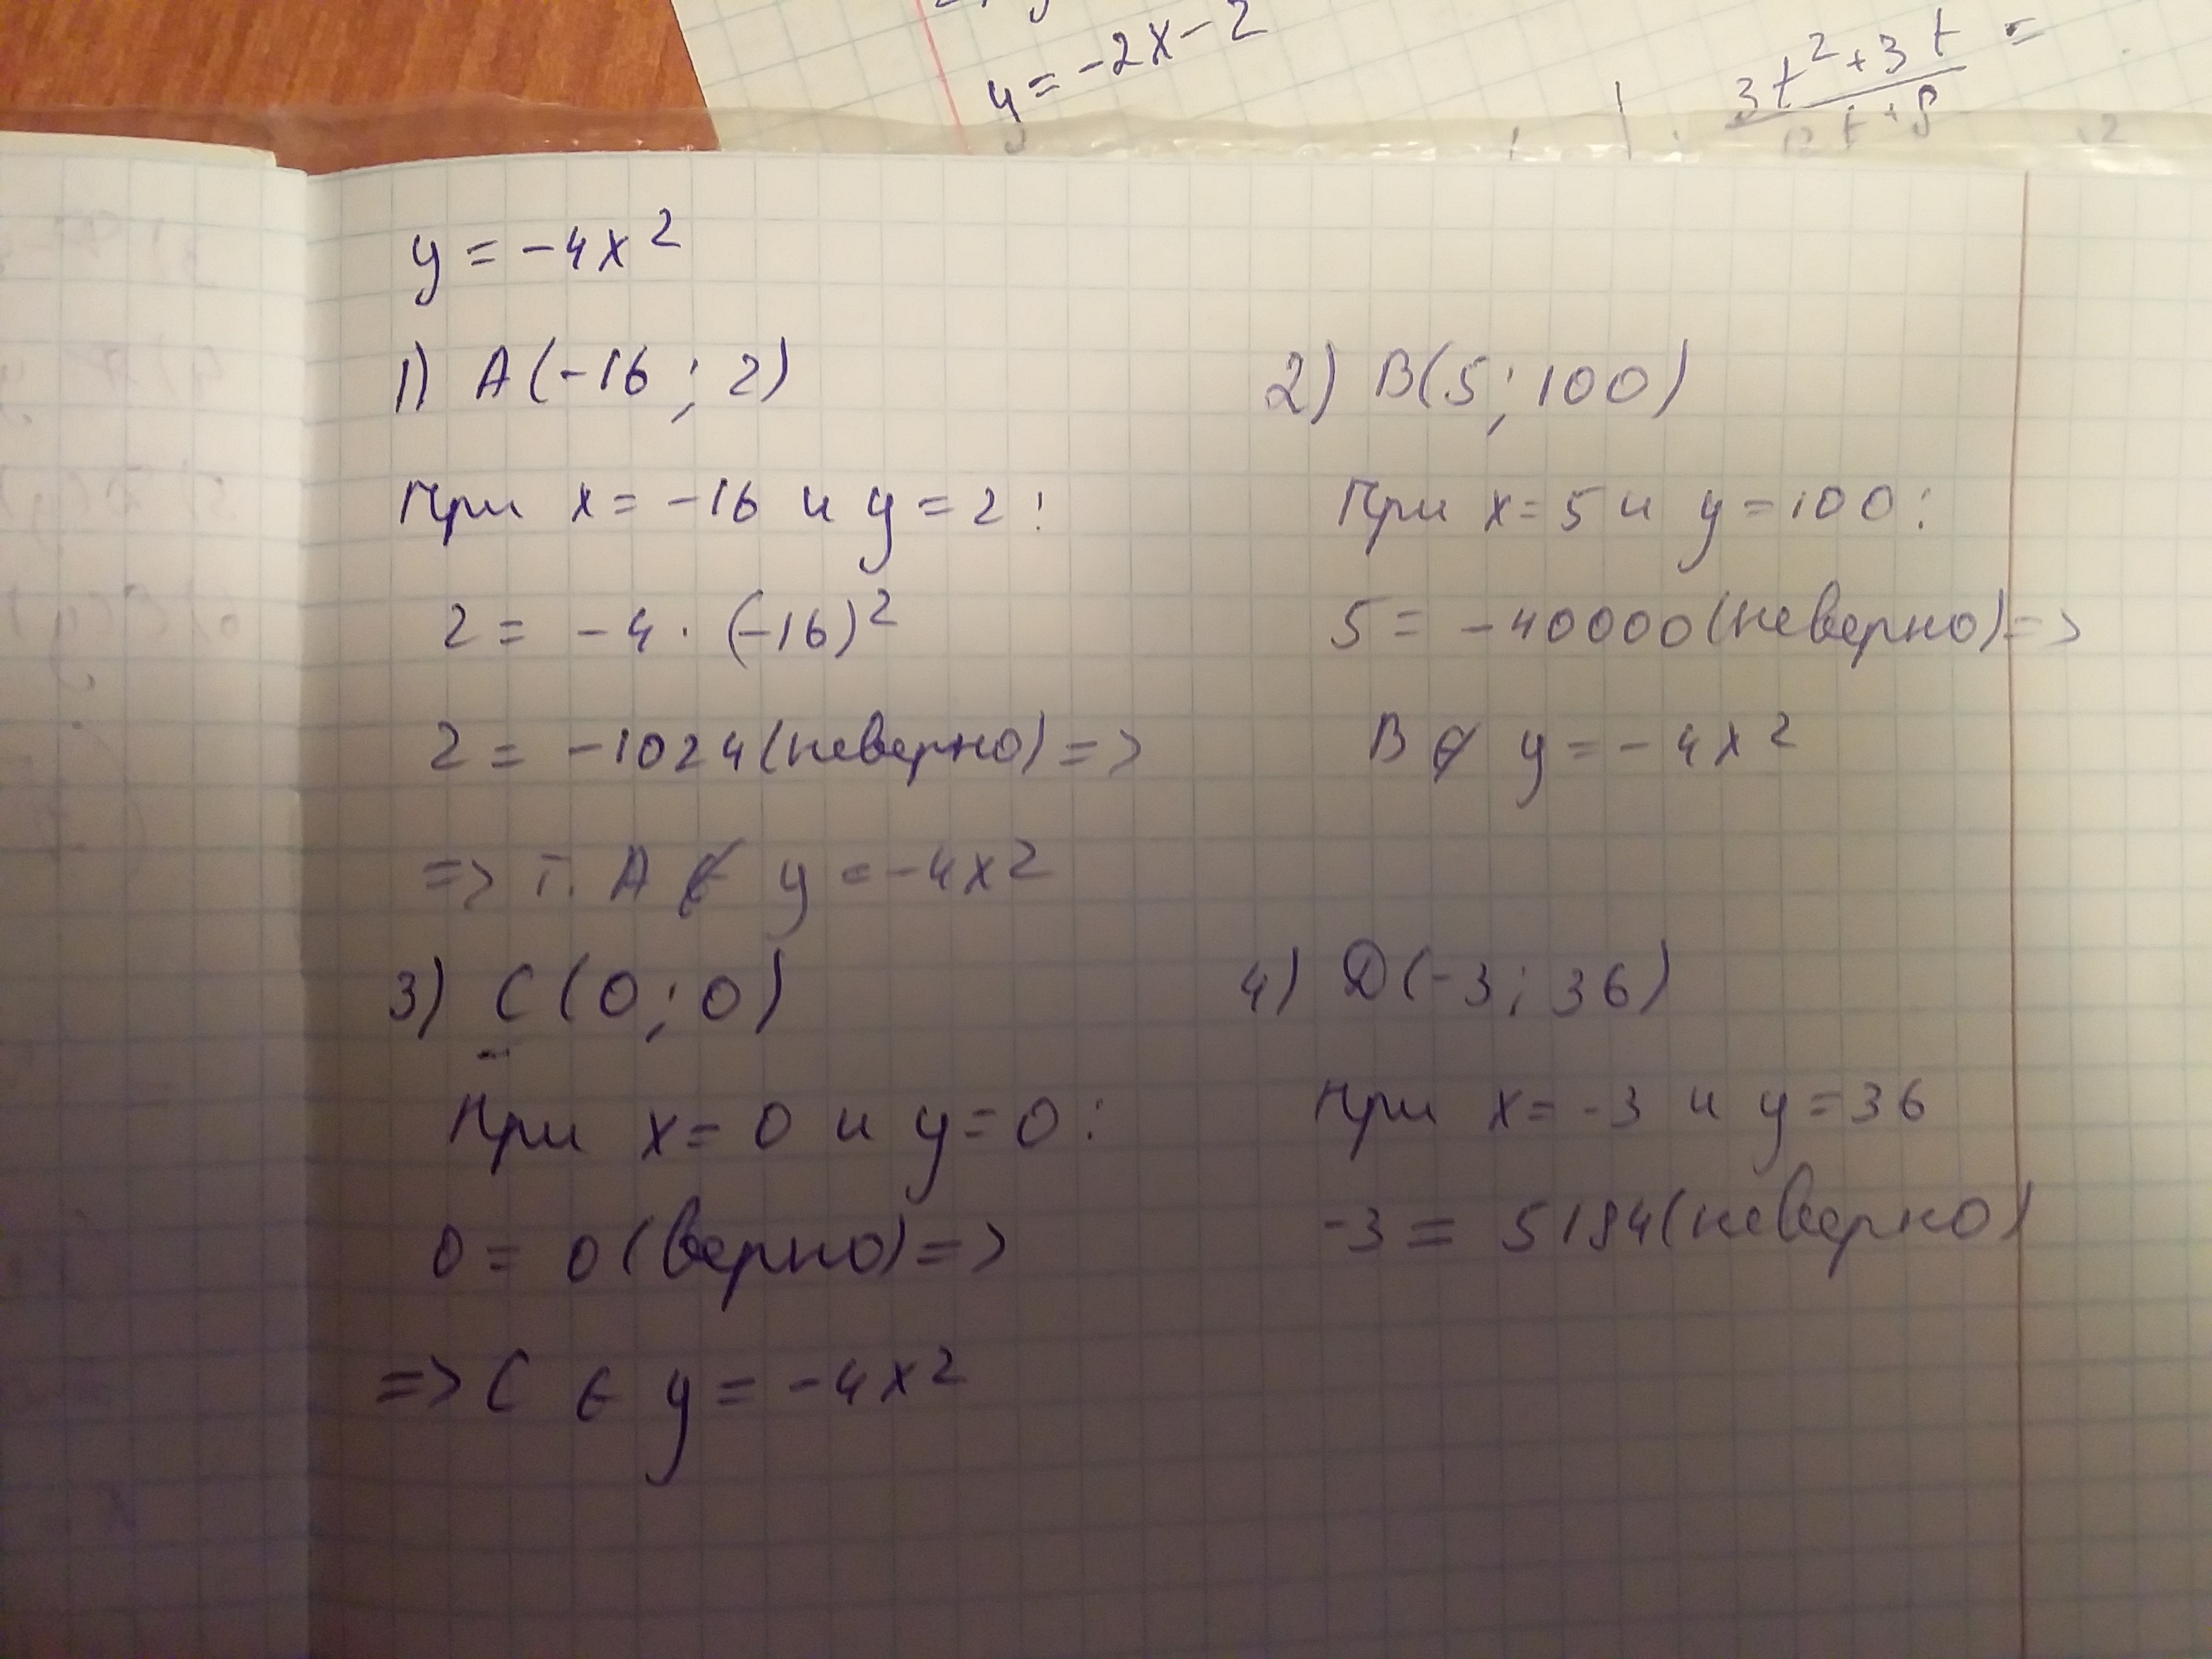 y = -2x - 2
3t² + 3t =
y = -4x²
1) A(-16; 2)
При x = -16 и y = 2:
2 = -4 · (-16)²
2 = -1024 (неверно) =>
=> т. A ∉ y = -4x²
2) B(5; 100)
При x = 5 и y = 100:
5 = -40000 (неверно) =>
B ∉ y = -4x²
3) C(0; 0)
При x = 0 и y = 0:
0 = 0 (верно) =>
=> C ∈ y = -4x²
4) D(-3; 36)
При x = -3 и y = 36
-3 = 5184 (неверно)